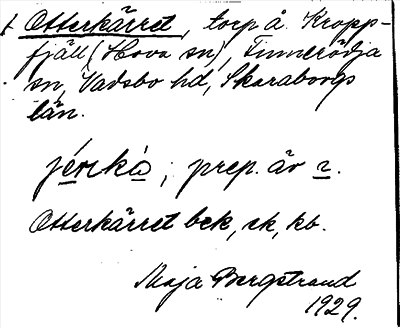 Otterkärret, torp å Kropp-
fjäll (Hova sn), Finnerödja
sn, Vadsbo hd, Skaraborgs
län.
prep. är
Otterkärret bek, sk, kb.
Maja Bergstrand
1929.